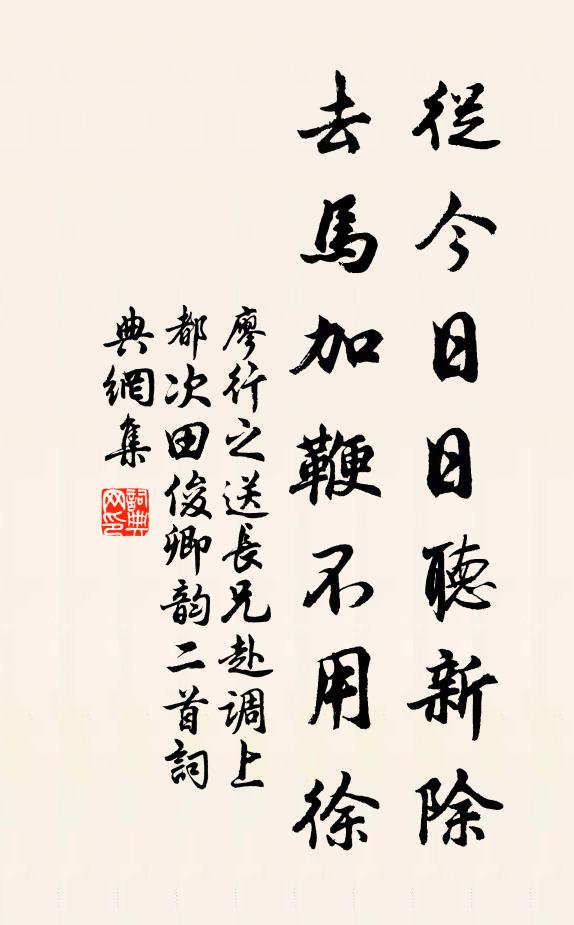 從今日日聽新除
去馬加鞭不用徐
廖行之送長兄赴調上
都次田俊卿韵二首詞
典網集
詞典网印